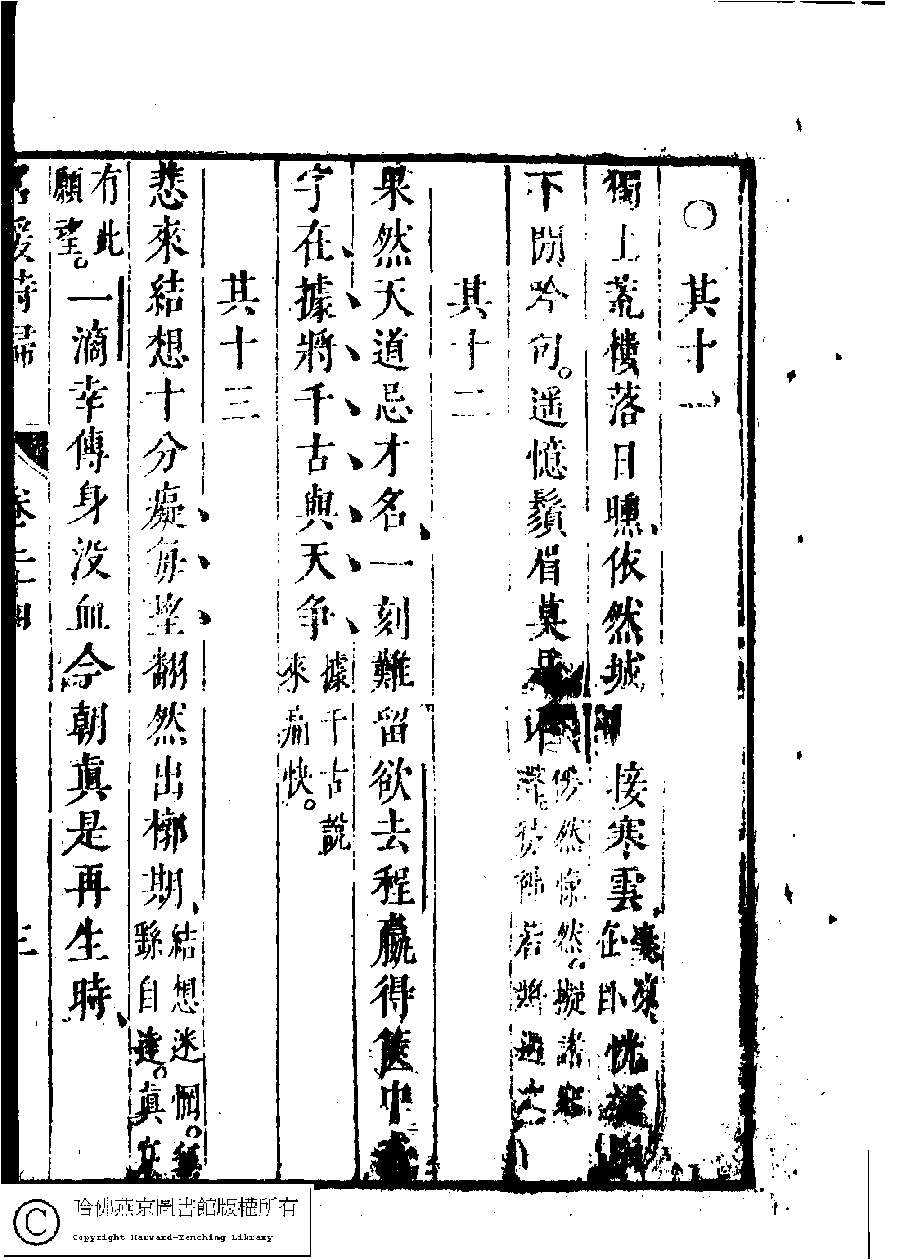 ○　其十一
獨上荒樓落日曛依然城　接寒雲　恍
下閒吟句遥憶鬚眉某　　傍然悚然擬諸
若將遇之
其十二
果然天道忌才名一刻難留欲去程贏得篋中
字在據將千古與天爭據千古說
來痛快
其十三
悲來結想十分癡每望翻然出槨期結想迷惘
繇自達真
有此
願望一滴幸傳身沒血今朝真是再生時
名媛詩歸　卷之二十四　三
哈佛燕京圖書館版權所有
Copyright Harvard-Yenching Library